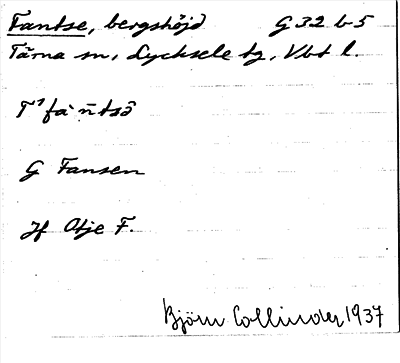 Fantse, bergshöjd G 32 b 5
Tärna sn, Lycksele tg, Vbt l.
G Fansen
Jf Atje F.
Björn Collinder 1937